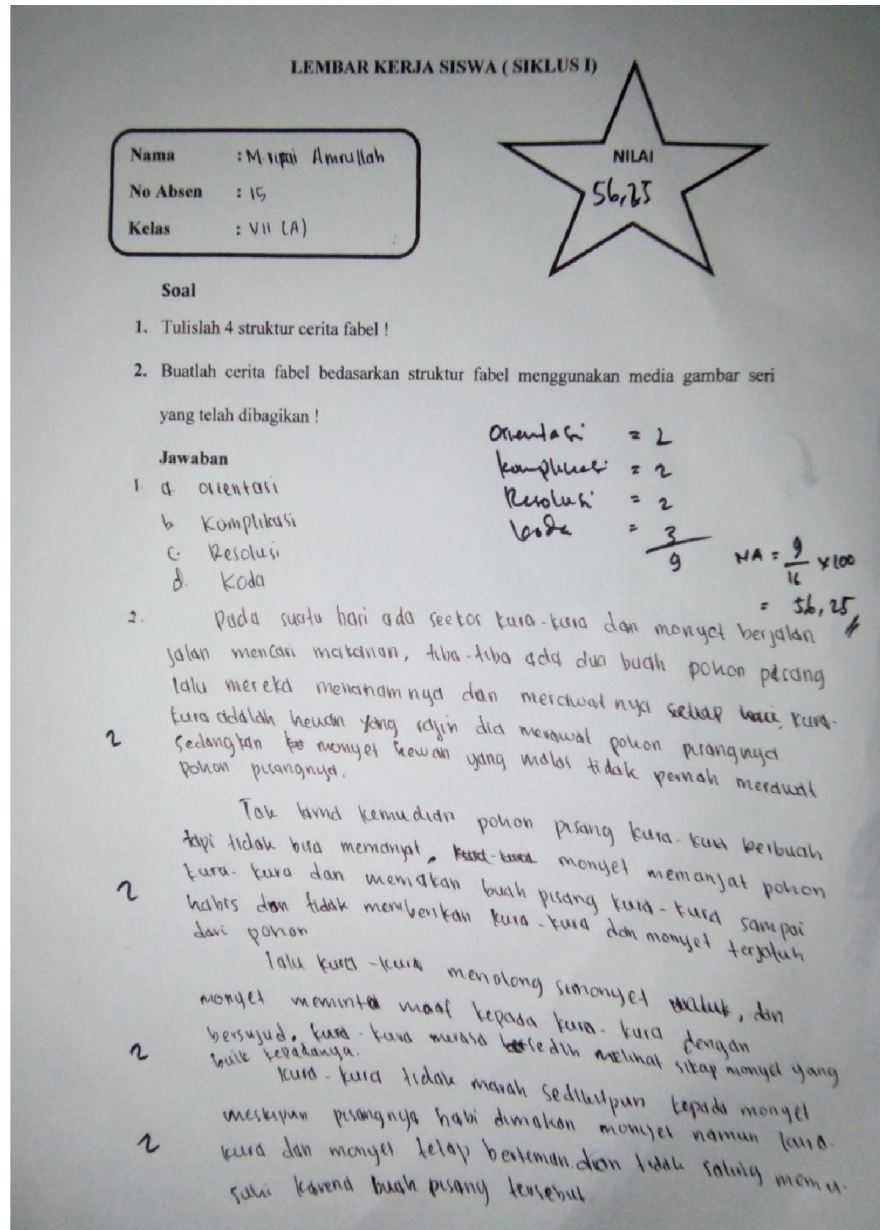 LEMBAR KERJA SISWA ( SIKLUS I)
NILAI
56,25
Nama : M Amrullah
No Absen : 15
Kelas : VII (A)
Soal
1. Tulislah 4 struktur cerita fabel !
2. Buatlah cerita fabel bedasarkan struktur fabel menggunakan media gambar seri
yang telah dibagikan !
Orientasi = 2
Komplikasi = 2
Resolusi = 2
koda = 3
9
NA = 9/16 x 100
= 56,25
Jawaban
1. a orientasi
b Komplikasi
c. Resolusi
d. Koda
2. Pada suatu hari ada seekor kura-kura dan monyet berjalan
jalan mencari makanan, tiba-tiba ada dua buah pohon pisang
lalu mereka menanamnya dan merawatnya setiap hari, kura-
kura adalah hewan yang rajin dia merawat pohon pisangnya
2 sedangkan monyet hewan yang malas tidak pernah merawat
pohon pisangnya.
Tak lama kemudian pohon pisang kura-kura berbuah
tapi tidak bisa memanjat, monyet memanjat pohon
kura-kura dan memakan buah pisang kura-kura sampai
2 habis dan tidak memberikan kura-kura dan monyet terjatuh
dari pohon
lalu kura-kura menolong simonyet, dan
monyet meminta maaf kepada kura-kura dengan
bersujud, kura-kura merasa sedih melihat sikap monyet yang
2 baik kepadanya.
kura-kura tidak marah sedikitpun kepada monyet
meskipun pisangnya habi dimakan monyet namun kura-
2 kura dan monyet tetap berteman dan tidak saling memu-
suhi karena buah pisang tersebut.